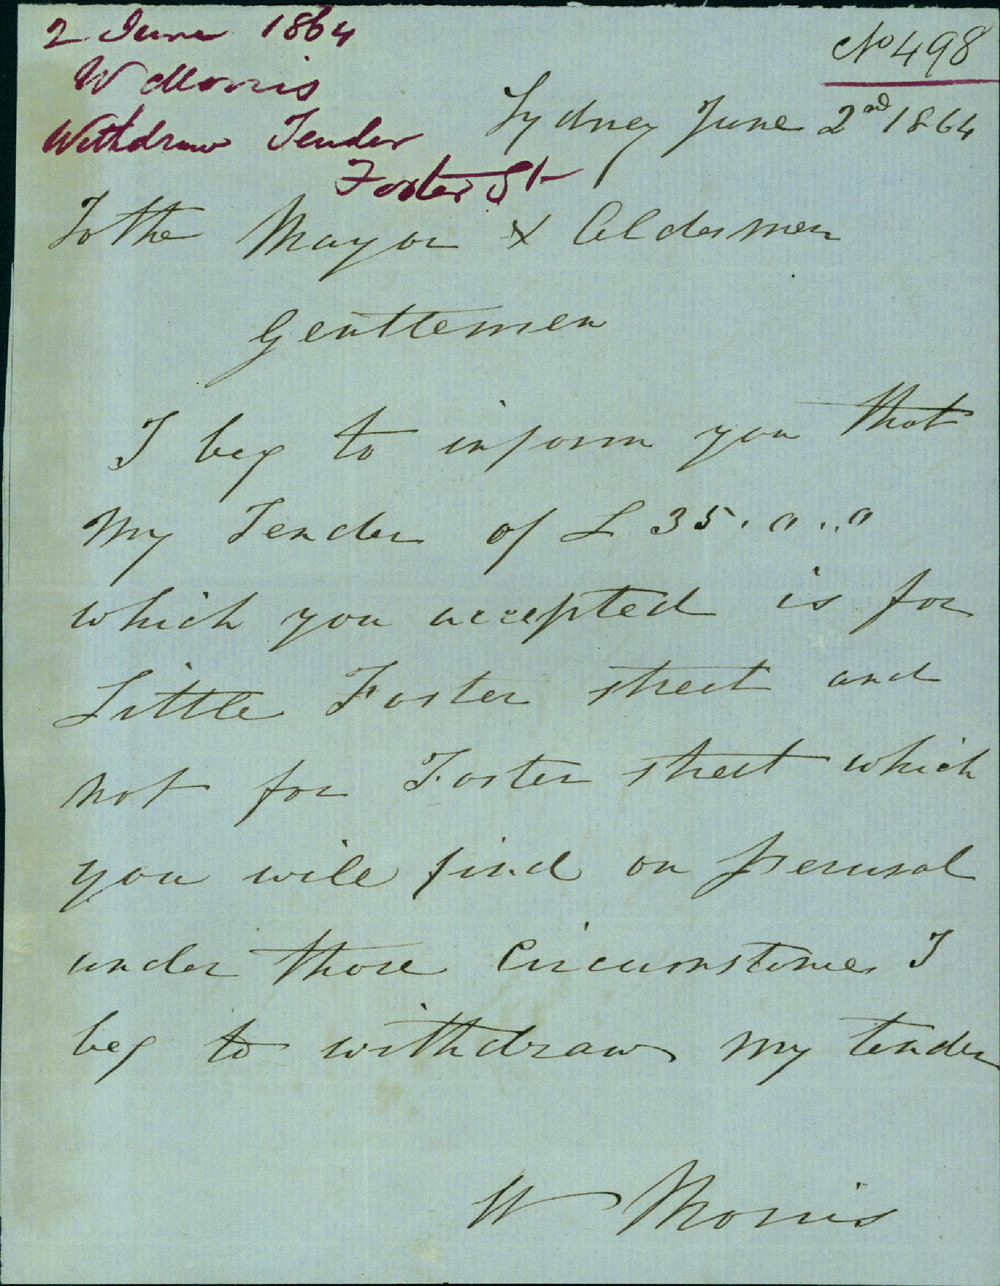 2 June 1864
W Morris
Withdraw Tender
Foster St
No 498
Sydney June 2nd 1864
To the Mayor & Aldermen
Gentlemen
I beg to inform you that
My Tender of £35.0..0
which you accepted is for
Little Foster street and
not for Foster street which
you will find on perusal
under those Circumstances I
beg to withdraw my tender
W Morris